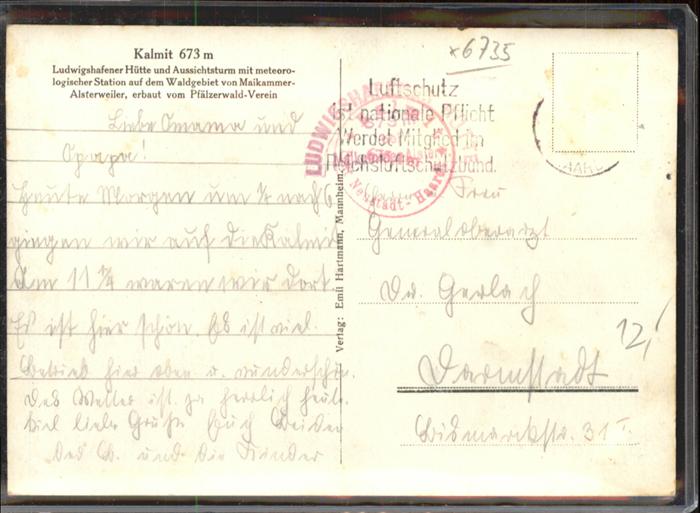 Kalmit 673 m
Ludwigshafener Hütte und Aussichtsturm mit meteoro-
logischer Station auf dem Waldgebiet von Maikammer-
Alsterweiler, erbaut vom Pfälzerwald-Verein
Liebe Omama und
Opapa!
Heute Morgen um 1/4 nach 6
gingen wir auf die Kalmit
Am 11 1/4 waren wir dort.
Es ist hier schön. Es ist viel
Betrieb hier oben u. wunderschön
Das Wetter ist ja herrlich heute
Viel liebe Grüße Euch Beiden
und die Kinder
Verlag: Emil Hartmann, Mannheim.
x6735
Luftschutz
ist nationale Pflicht
Werdet Mitglied im
Reichsluftschutzbund.
LUDWIGSHAF
Neustadt - Haardt
Frau
Generaloberarzt
Dr. Gerlach
Darmstadt
Bismarckstr. 31 I.
12,-